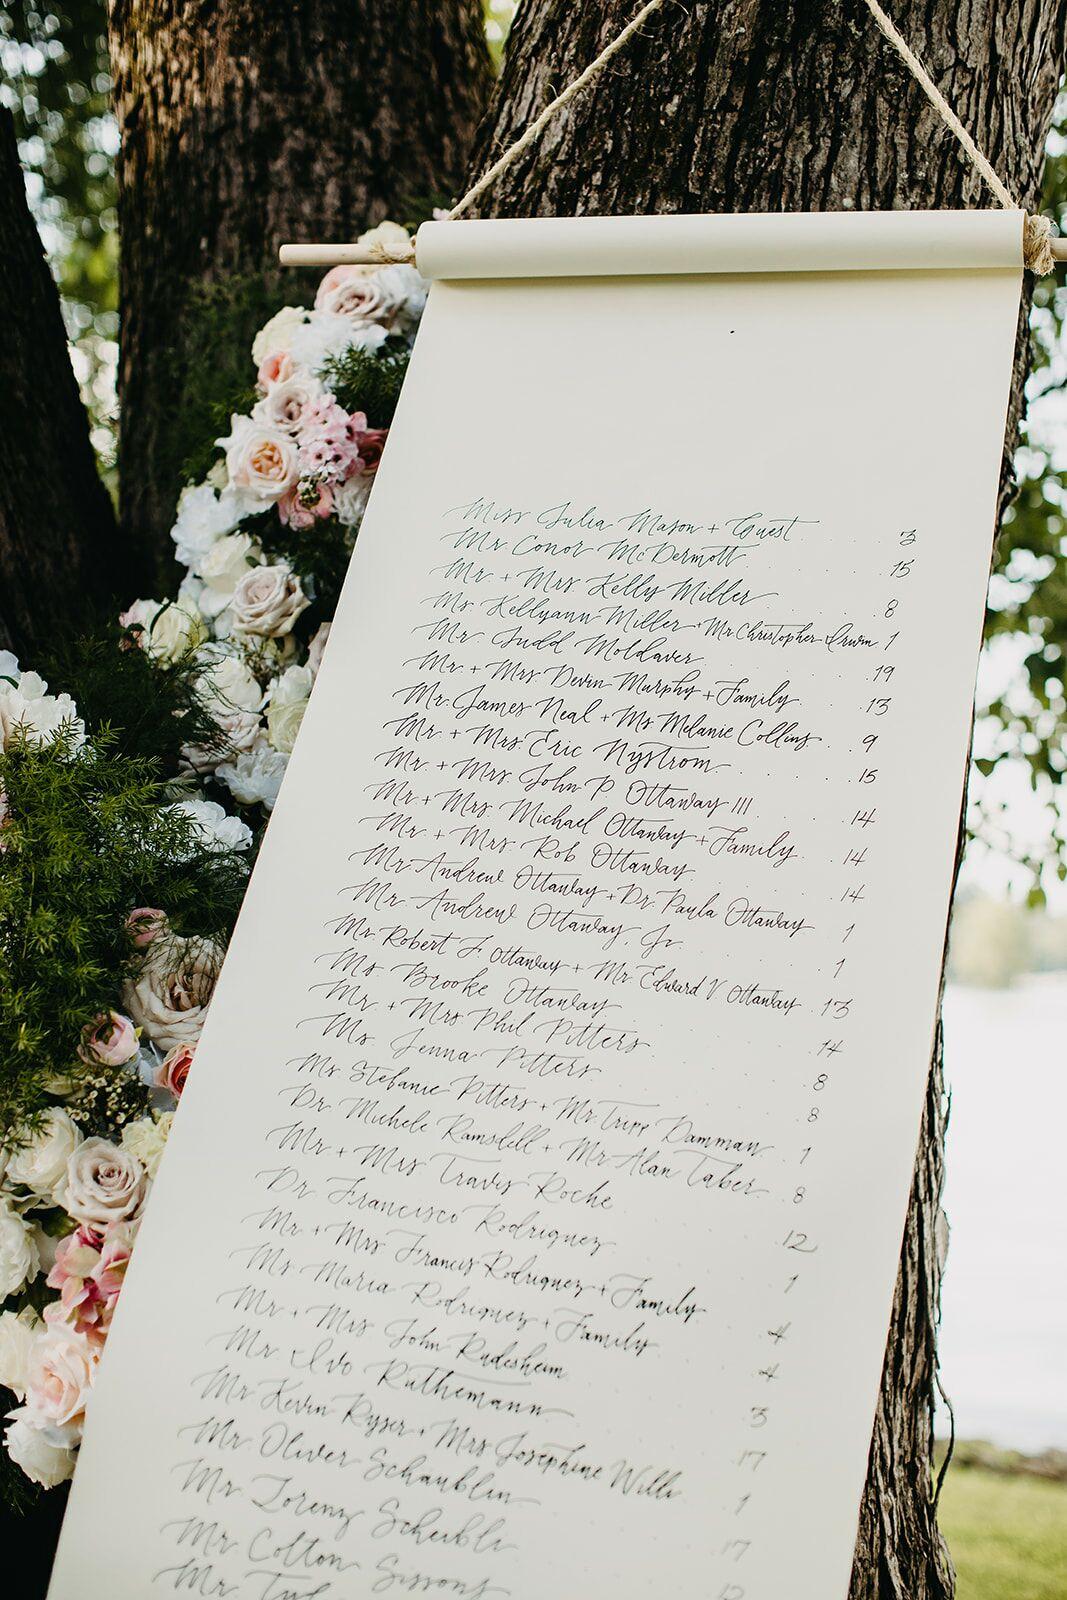 Miss Julia Mason + Guest 3
Mr Conor McDermott 15
Mr + Mrs Kelly Miller 8
Ms. Kellyann Miller + Mr Christopher Irwin 1
Mr Judd Moldaver 19
Mr. + Mrs. Devin Murphy + Family 13
Mr. James Neal + Ms Melanie Collins 9
Mr + Mrs. Eric Nystrom 15
Mr. + Mrs. John P Ottaway III 14
Mr. + Mrs. Michael Ottaway + Family 14
Mr + Mrs Rob Ottaway 14
Mr Andrew Ottaway + Dr. Paula Ottaway 1
Mr. Andrew Ottaway, Jr. 1
Mr. Robert J. Ottaway + Mr Edward V Ottaway 13
Ms Brooke Ottaway 14
Mr. + Mrs Phil Pitters 8
Ms. Jenna Pitters 8
Ms Stefanie Pitters + Mr. Tripp Damman 1
Dr. Michele Ramsdell + Mr Alan Taber 8
Mr + Mrs Travis Roche 12
Dr Francisco Rodriguez 1
Mr + Mrs Francis Rodriguez + Family 4
Ms Maria Rodriguez + Family 4
Mr + Mrs John Rudesheim 3
Mr Ivo Ruthemann 17
Mr Kevin Ryser + Mrs Josephine Willi 1
Mr Oliver Schaublin 17
Mr Lorenz Scheibli 12
Mr Colton Sissons
Mr.